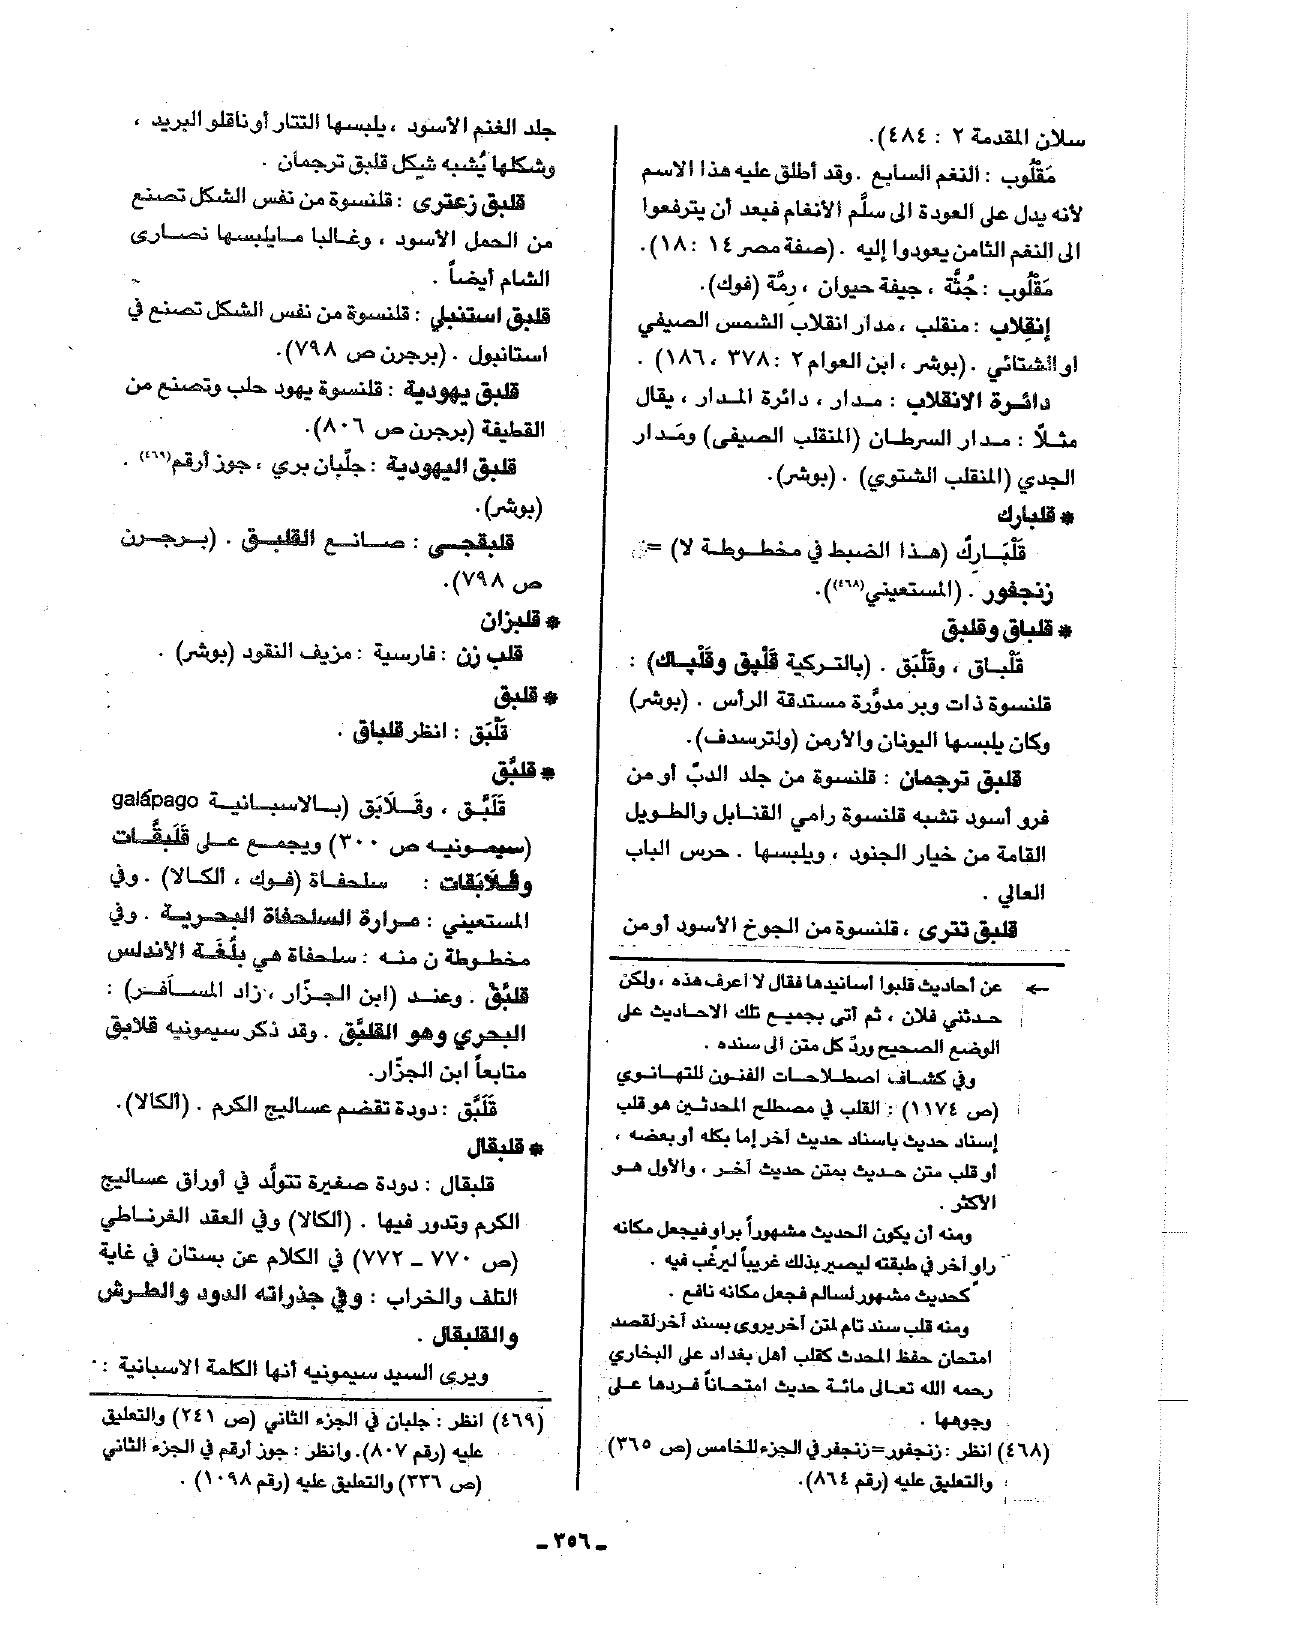 سلان المقدمة ٢ : ٤٨٤).
مَقْلُوب : النغم السابع . وقد أطلق عليه هذا الاسم
لأنه يدل على العودة الى سلَّم الأنغام فبعد أن يترفعوا
الى النغم الثامن يعودوا إليه . (صفة مصر ١٤ : ١٨).
مَقْلُوب : جُثَّة ، جيفة حيوان ، رِمَّة (فوك).
إنقلاب : منقلب ، مدار انقلاب الشمس الصيفي
او الشتائي . (بوشر ، ابن العوام ٢ : ٣٧٨ ، ١٨٦) .
دائرة الانقلاب : مدار ، دائرة المدار ، يقال
مثلاً : مدار السرطان (المنقلب الصيفي) ومَدار
الجدي (المنقلب الشتوي) . (بوشر).
* قلبارك
قَلْبَاركُ (هذا الضبط في مخطوطة لا) =
زنجفور . (المستعيني(٤٦٨)).
* قلباق وقلبق
قَلْباق ، وقَلْبَق . (بالتركية قَلْپق وقَلْپاك) :
قلنسوة ذات وبر مدوَّرة مستدقة الرأس . (بوشر)
وكان يلبسها اليونان والأرمن (ولترسدف).
قلبق ترجمان : قلنسوة من جلد الدبّ أو من
فرو أسود تشبه قلنسوة رامي القنابل والطويل
القامة من خيار الجنود ، ويلبسها . حرس الباب
العالي .
قلبق تترى ، قلنسوة من الجوخ الأسود أو من
← عن أحاديث قلبوا أسانيدها فقال لا أعرف هذه ، ولكن
حدثني فلان ، ثم أتى بجميع تلك الاحاديث على
الوضع الصحيح وردّ كل متن الى سنده .
وفي كشاف اصطلاحات الفنون للتهانوي
(ص ١١٧٤) : القلب في مصطلح المحدثين هو قلب
إسناد حديث باسناد حديث آخر إما بكله أو بعضه ،
أو قلب متن حديث بمتن حديث آخر ، والأول هو
الاكثر .
ومنه أن يكون الحديث مشهوراً براو فيجعل مكانه
راو آخر في طبقته ليصير بذلك غريباً ليرغب فيه .
كحديث مشهور لسالم فجعل مكانه نافع .
ومنه قلب سند تام لمتن آخر يروى بسند آخر لقصد
امتحان حفظ المحدث كقلب أهل بغداد على البخاري
رحمه الله تعالى مائة حديث امتحاناً فردها على
وجوهها .
(٤٦٨) انظر : زنجفور=زنجفر في الجزء الخامس (ص ٣٦٥)
والتعليق عليه (رقم ٨٦٤).
جلد الغنم الأسود ، يلبسها التتار أو ناقلو البريد ،
وشكلها يُشبه شكل قلبق ترجمان .
قلبق زعترى : قلنسوة من نفس الشكل تصنع
من الحمل الأسود ، وغالبا ما يلبسها نصارى
الشام أيضاً .
قلبق استنبلي : قلنسوة من نفس الشكل تصنع في
استانبول . (برجرن ص ٧٩٨).
قلبق يهودية : قلنسوة يهود حلب وتصنع من
القطيفة (برجرن ص ٨٠٦).
قلبق اليهودية : جلّبان بري ، جوز أرقم(٤٦٩) .
(بوشر).
قلبقجى : صانع القلبق . (برجرن
ص ٧٩٨).
* قلبزان
قلب زن : فارسية : مزيف النقود (بوشر) .
* قلبق
قَلْبَق : انظر قلباق .
* قلبَّق
قَلَبَّق ، وقَلَابَق (بالاسبانية galápago
(سيمونيه ص ٣٠٠) ويجمع على قَلَبقَّات
وقَلَابَقات : سلحفاة (فوك ، ألكالا) . وفي
المستعيني : مرارة السلحفاة البحرية . وفي
مخطوطة ن منه : سلحفاة هي بلُغَة الأندلس
قلبَّق . وعند (ابن الجزّار ، زاد المسافر) :
البحري وهو القلبَّق . وقد ذكر سيمونيه قلابق
متابعاً ابن الجزّار.
قَلَبَّق : دودة تقضم عساليج الكرم . (ألكالا).
* قلبقال
قلبقال : دودة صغيرة تتولَّد في أوراق عساليج
الكرم وتدور فيها . (ألكالا) وفي العقد الغرناطي
(ص ٧٧٠ ــ ٧٧٢) في الكلام عن بستان في غاية
التلف والخراب : وفي جذراته الدود والطرش
والقلبقال .
ويرى السيد سيمونيه أنها الكلمة الاسبانية :
(٤٦٩) انظر : جلبان في الجزء الثاني (ص ٢٤١) والتعليق
عليه (رقم ٨٠٧). وانظر : جوز أرقم في الجزء الثاني
(ص ٣٣٦) والتعليق عليه (رقم ١٠٩٨) .
ـ ٣٥٦ ـ